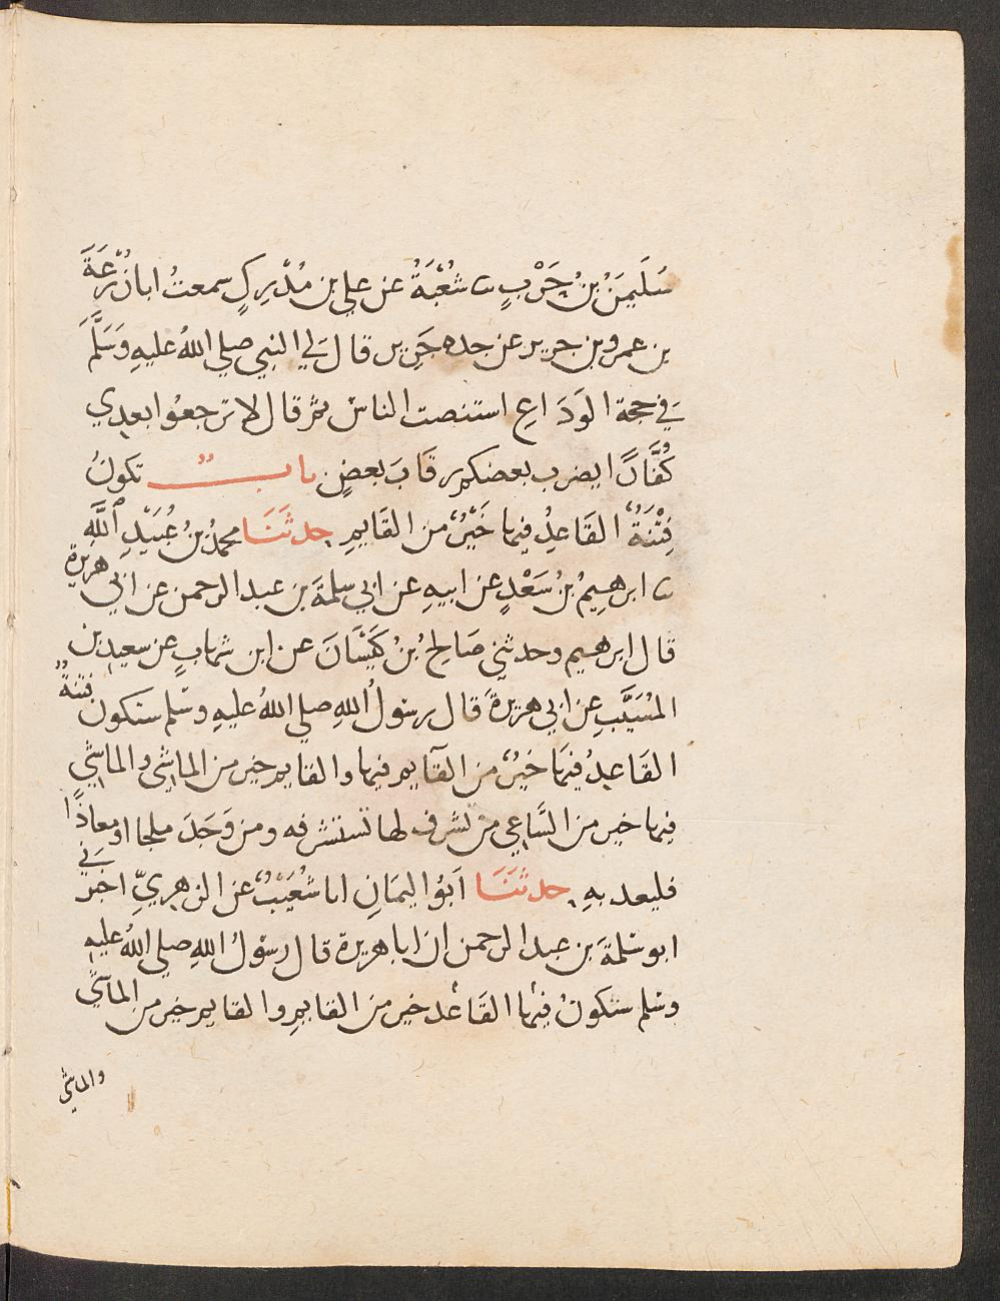 سُلَيمَنُ بنُ حَرْبٍ ثنا شعْبَةُ عن علي بن مُدْرِكٍ سمعتُ ابا زُرْعَةَ
بن عمرو بن جرير عن جده جَرِير قال لي النبي صلي اللهُ عليهِ وَسَلَّمَ
في حجة الوَدَاعِ استنصت الناسَ ثم قال لا ترجعُوا بعدِي
كُفَّارًا يضرب بعضكم رقَابَ بعضٍ بابٌ تكونُ
فِتْنَةٌ القَاعِدُ فيها خَيْرٌ من القَايمِ حدثَنَا محمدُ بنُ عُبَيْدِ اللَّهِ
ثنا ابرهيمُ بنُ سَعْدٍ عن ابيهِ عن ابي سلمةَ بن عبد الرحمن عن ابي هريرة
قال ابرهيم وحدثني صَالِحُ بْنُ كَيْسَانَ عن ابن شهابٍ عن سعيد بن
المُسَيَّبِ عن ابي هريرةَ قال رسُولُ اللهِ صلي اللهُ عليهِ وسَلم ستكون فتنةٌ
القَاعِدُ فيهَا خَيْرٌ من القَايم فيها والقايم خير من الماشِي والماشِي
فيها خير من السَّاعِي من تشرف لها تستشرفه ومن وَجَدَ ملجا او معاذًا
فليعد بهِ حدثَنَا اَبُوا اليمَانِ انا شُعَيْبٌ عن الزهرِيِّ اخبرَني
ابو سَلمةَ بن عبد الرحمن ان ابا هريرة قال رسُولُ اللهِ صلي اللهُ عليهِ
وسَلم ستكونُ فيها القَاعْد خير من القايمِ والقايم خير من المآشي
والماشي